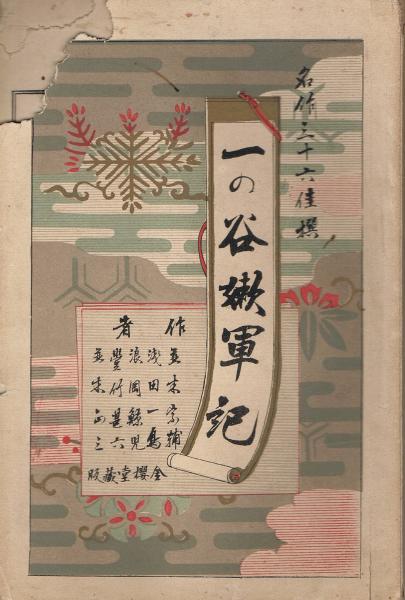 名作三十六佳撰
一の谷嫩軍記
作者
並木宗輔
浅田一鳥
浪岡鯨児
豊竹甚六
並木正三
金櫻堂藏版